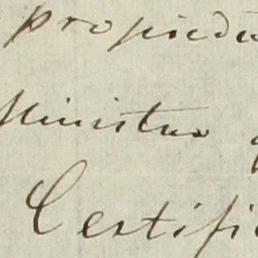 propieda
Ministro
Certific